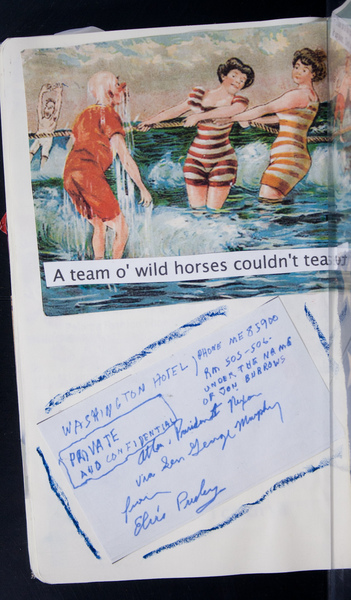 A team o' wild horses couldn't tea
WASHINGTON HOTEL) PHONE ME 85900
RM 505-506.
UNDER THE NAME
OF JON BURROWS
PRIVATE
AND CONFIDENTIAL
Attn. President Nixon
via Sen George Murphy
from
Elvis Presley